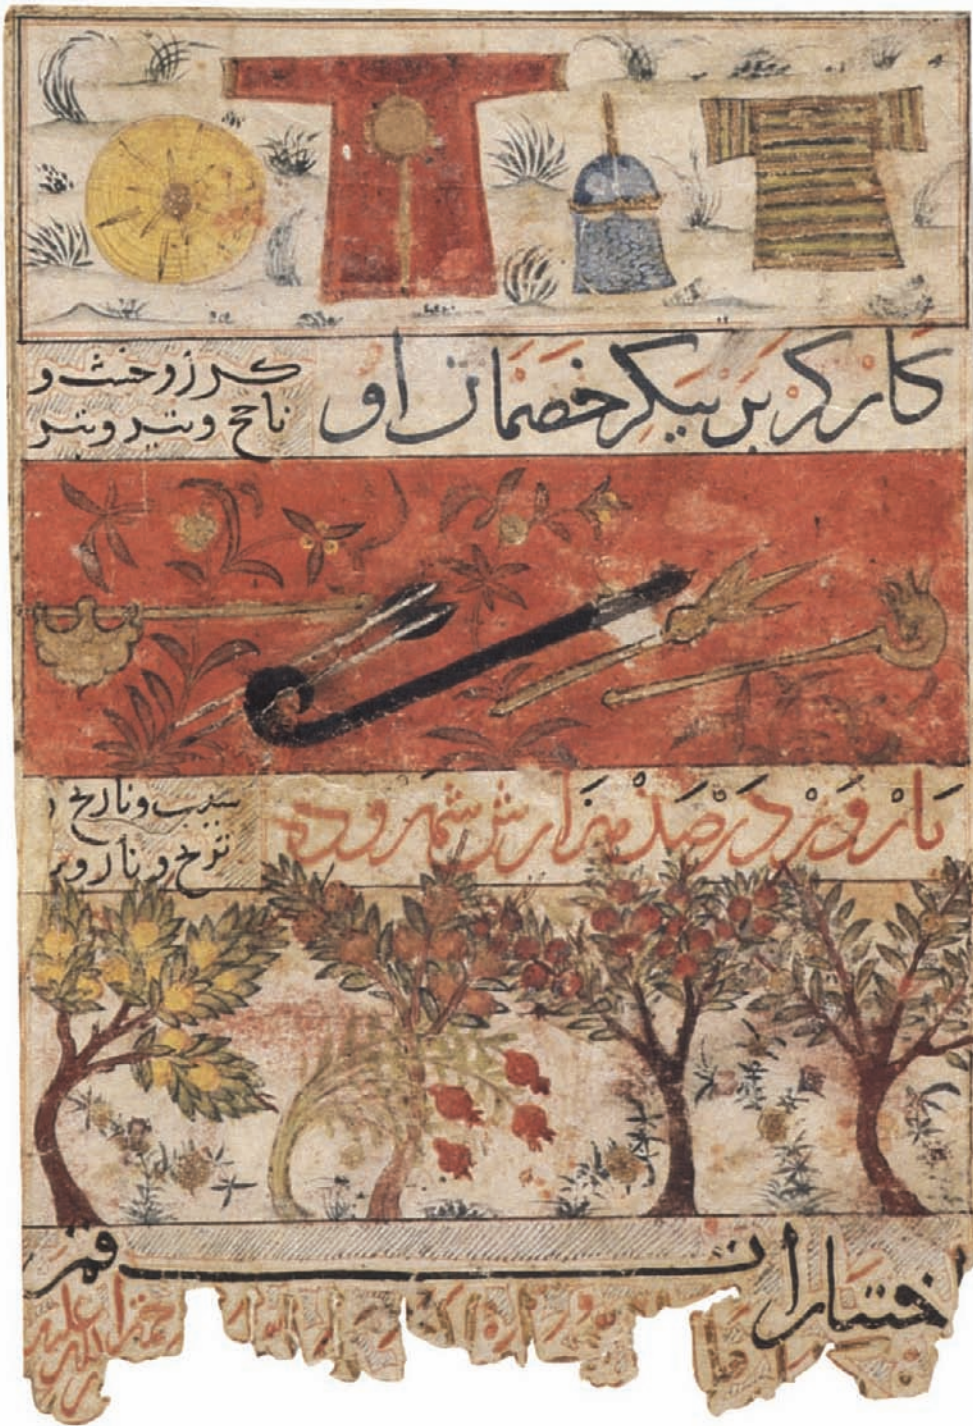 کارکر بر پیکر خصمان او
کرز و خشت و
ناجخ و تیر و تبر
بارور در صد هزارش شهر و ده
سیب و نارنج و
ترنج و نار و بر
اختیارات قمر